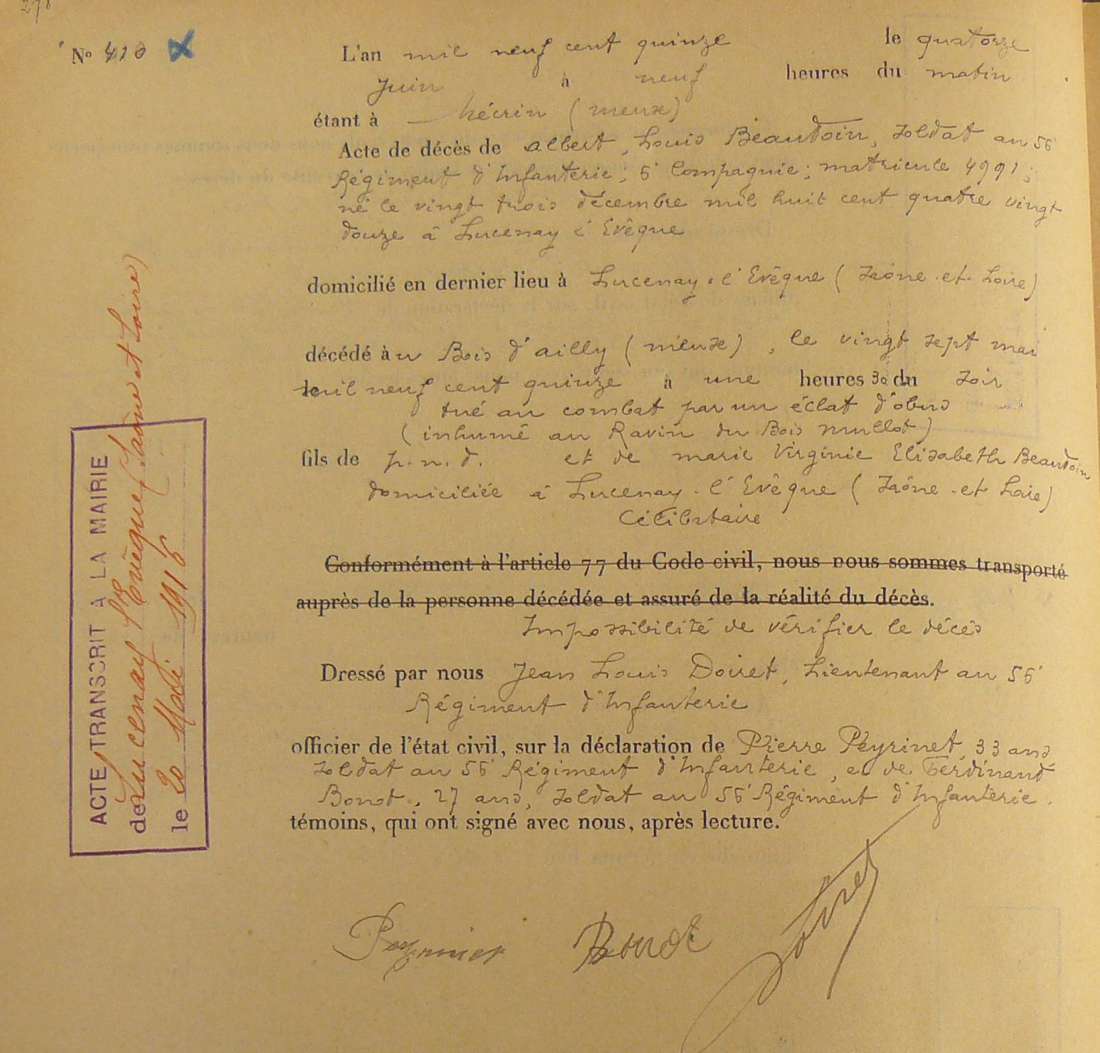 278
N° 410
L'an mil neuf cent quinze le quatorze
Juin à neuf heures du matin
étant à Mécrin (Meuse)
Acte de décès de Albert, Louis Beaudoin, Soldat au 56e
Régiment d'Infanterie; 6e Compagnie; matricule 4991;
né le vingt trois décembre mil huit cent quatre vingt
douze à Lucenay l'Evêque
domicilié en dernier lieu à Lucenay-l'Evêque (Saône-et-Loire)
décédé au Bois d'Ailly (Meuse), le vingt sept mai
mil neuf cent quinze à une heures 30 du Soir
tué au combat par un éclat d'obus
(inhumé au Ravin du Bois Mullot)
fils de p.n.d. et de Marie Virginie Elisabeth Beaudoin
domiciliée à Lucenay-l'Evêque (Saône-et-Loire)
Célibataire
Conformément à l'article 77 du Code civil, nous nous sommes transporté
auprès de la personne décédée et assuré de la réalité du décès.
Impossibilité de vérifier le décès
Dressé par nous Jean Louis Doiret, Lieutenant au 56e
Régiment d'Infanterie
officier de l'état civil, sur la déclaration de Pierre Peyrinet, 33 ans
Soldat au 56e Régiment d'Infanterie, et de Ferdinand
Bonot, 27 ans, Soldat au 56e Régiment d'Infanterie.
témoins, qui ont signé avec nous, après lecture.
Bonot
ACTE TRANSCRIT À LA MAIRIE
de Lucenay l'Evêque (Saône et Loire)
le 20 Août 1916